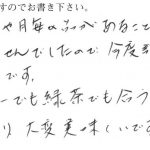 すのでお書き下さい。
や月毎の品があること
せんでしたので 今度
です。
ーでも緑茶でも合う
り 大変美味しいです